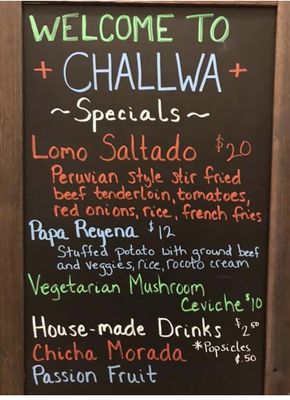 WELCOME TO
+ CHALLWA +
~Specials~
Lomo Saltado $20
Peruvian style stir fried
beef tenderloin, tomatoes,
red onions, rice, french fries
Papa Reyena $12
Stuffed potato with ground beef
and veggies, rice, rocoto cream
Vegetarian Mushroom
Ceviche $10
House-made Drinks $2.50
Chicha Morada *Popsicles
$.50
Passion Fruit